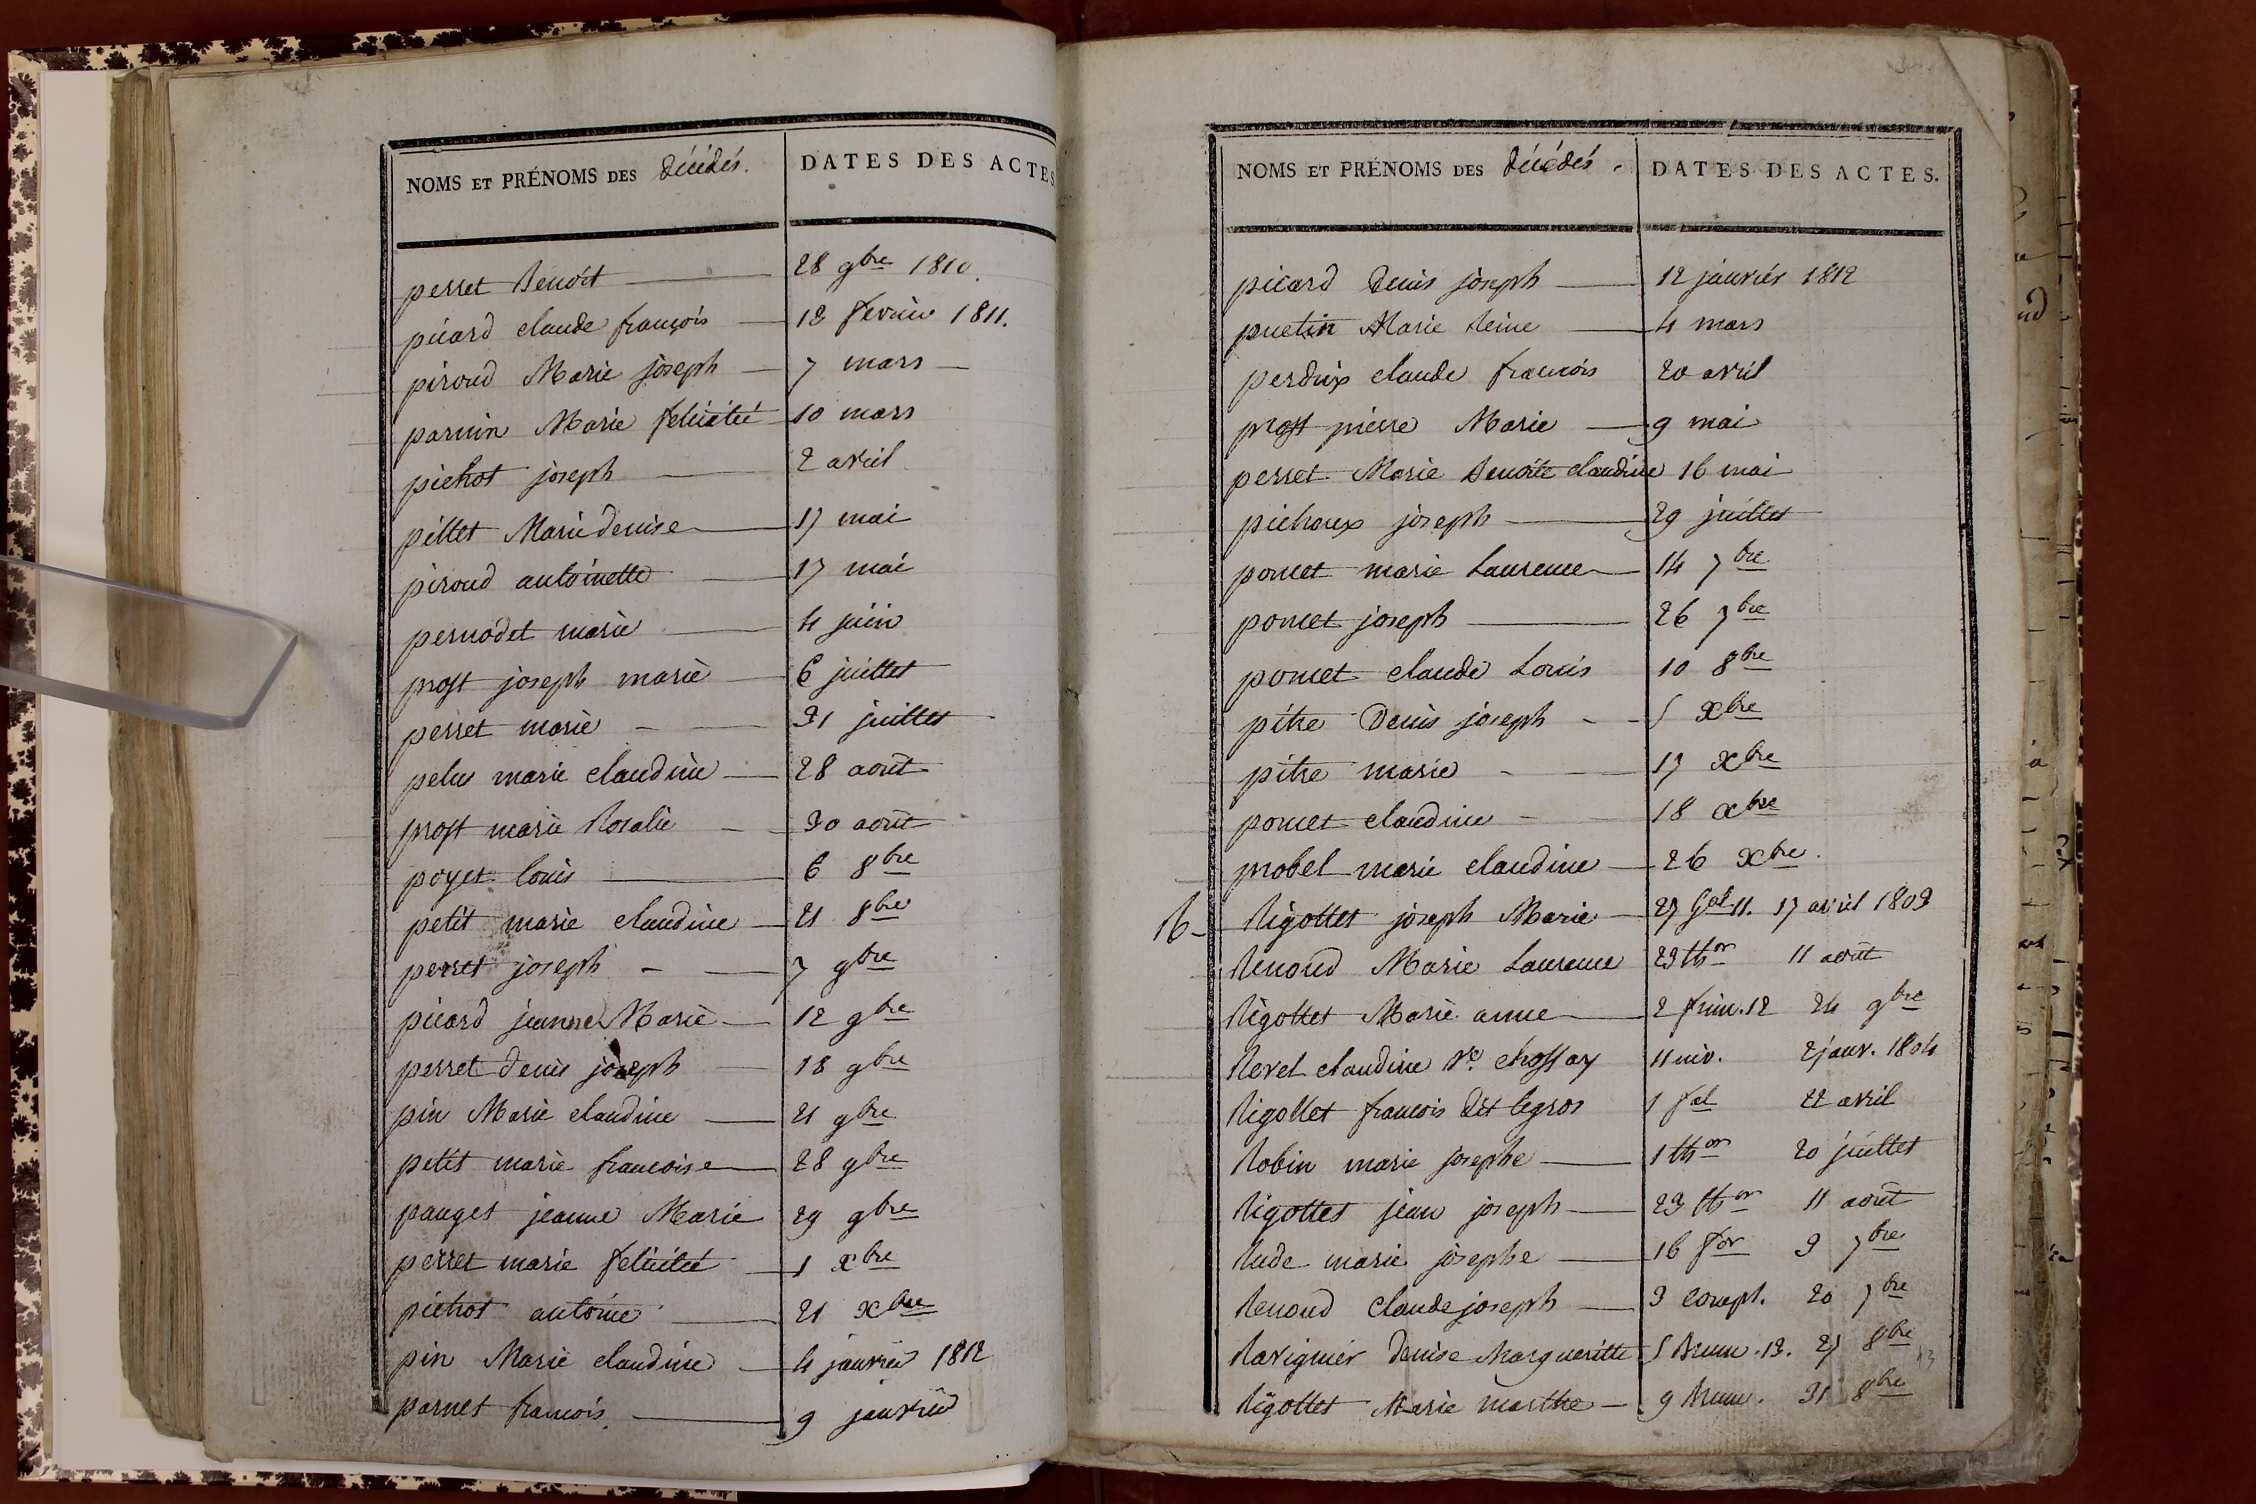 NOMS ET PRÉNOMS DES Décédés. DATES DES ACTES
perret Benoit 28 9bre 1810.
picard claude françois 12 fevrier 1811.
piroud Marie joseph 7 mars
parnin Marie felicité 10 mars
pichot joseph 2 avril
pillet Marie denise 17 mai
piroud antoinette 17 mai
pernodet marie 4 juin
prost joseph marie 6 juillet
perret marie 31 juillet
pelus marie claudine 28 août
prost marie Rosalie 30 août
poyet louis 6 8bre
petit marie claudine 21 8bre
perret joseph 7 9bre
picard jeanne Marie 12 9bre
perret denis joseph 18 9bre
pin Marie claudine 21 9bre
petit marie francoise 28 9bre
pauget jeanne Marie 29 9bre
perret marie felicité 1 xbre
pichot antoine 21 xbre
pin Marie claudine 4 janvier 1812
parnet francois 9 janvier
NOMS ET PRÉNOMS DES Décédés DATES DES ACTES.
picard Denis joseph 12 janvier 1812
Marie Reine 4 mars
perdrix claude francois 20 avril
prost pierre Marie 9 mai
perret Marie Benoite claudine 16 mai
pichoux joseph 29 juillet
poncet marie Laurence 14 7bre
poncet joseph 26 7bre
poncet claude Louis 10 8bre
pitre Denis joseph 5 xbre
pitre marie 17 xbre
poncet claudine 18 xbre
probel marie claudine 26 xbre.
16 Rigottet joseph Marie 27 Gal 11. 17 avril 1803
Renoud Marie Laurence 23 thor 11 août
Rigottet Marie anne 2 frim. 12 24 9bre
Revel claudine Ve chossay 11 niv. 2 janv. 1804
Rigottet francois dit legros 1 fal 22 avril
Robin marie josephe 1 thor 20 juillet
Rigottet jean joseph 23 thor 11 août
Rude marie josephe 16 for 3 7bre
Renoud Claude joseph 3 compl. 20 7bre
Ravignier Denise Margueritte 5 Brum. 13. 27 8bre
Rigottet Marie marthe 9 Brum. 31 8bre